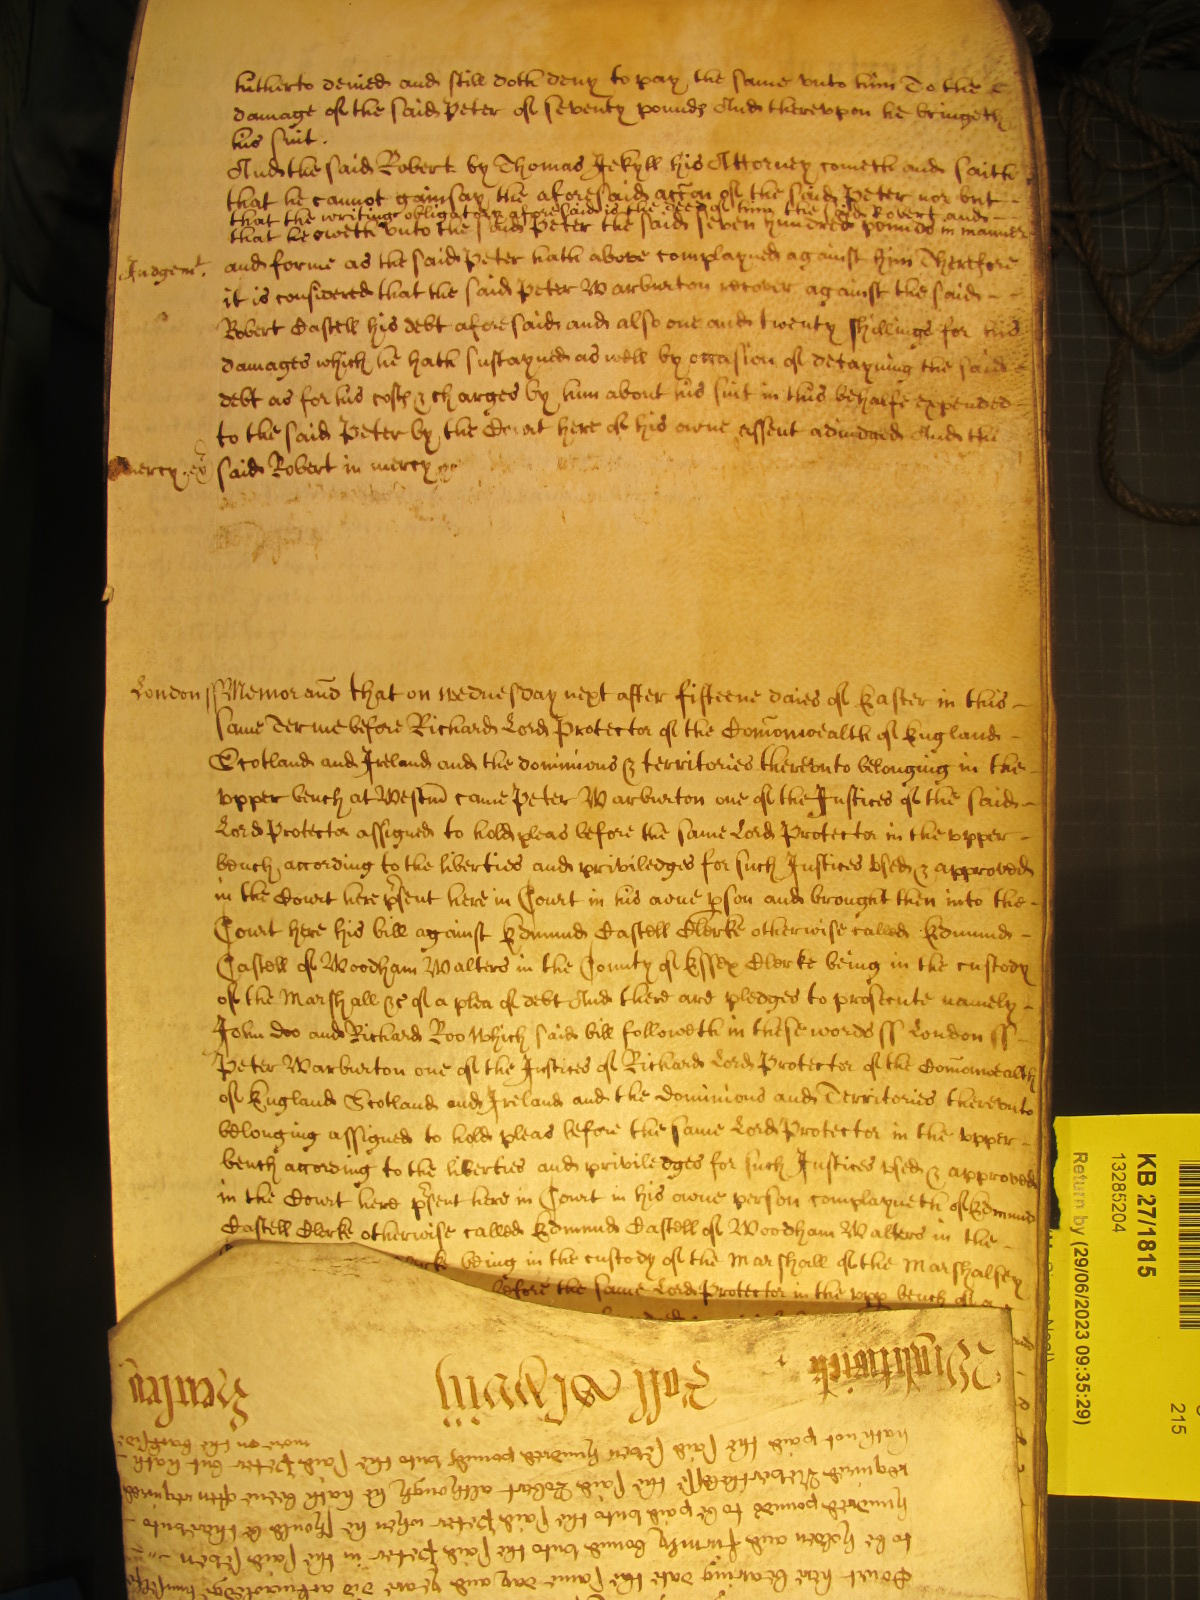 hitherto denied and still doth deny to pay the same vnto him To the
damage of the said Peter of seventy pounds And therevpon he bringeth
his suit.
And the said Robert by Thomas Jekyll his Attorney cometh and saith
that he cannot gainsay the aforesaid accon of the said Peter nor but
that the writing obligatory aforesaid is the deed of him the said Robert and
that he oweth vnto the said Peter the said seven hundred pounds in manner
Judgemt. and forme as the said Peter hath above complayned against him Therefore
it is considered that the said Peter Warburton recover against the said
Robert Castell his debt aforesaid and also one and twenty shillings for his
damages which he hath sustayned as well by occasion of detayning the said
debt as for his costs & charges by him about his suit in this behalfe expended
to the said Peter by the Court here of his owne assent adiudged And the
mercy said Robert in mercy &c
London ss Memorand that on wednesday next after fifteene daies of Easter in this
same Terme before Richard Lord Protector of the Comonwealth of England
Scotland and Ireland and the dominions & territories therevnto belonging in the
vpper bench at Westm came Peter Warburton one of the Justices of the said
Lord Protector assigned to hold pleas before the same Lord Protector in the vpper
bench according to the liberties and priviledges for such Justices vsed & approved
in the Court here psent here in Court in his owne pson and brought then into the
Court here his bill against Edmund Castell Clerke otherwise called Edmund
Castell of Woodham Walters in the County of Essex Clerke being in the custody
of the Marshall &c of a plea of debt And there are pledges to prosecute namely
John Doo and Richard Roo Which said bill followeth in these words ss London ss
Peter Warburton one of the Justices of Richard Lord Protector of the Comonwealth
of England Scotland and Ireland and the dominions and Territories therevnto
belonging assigned to hold pleas before the same Lord Protector in the vpper
bench according to the liberties and priviledges for such Justices vsed & approved
in the Court here psent here in Court in his owne person complayneth of Edmund
Castell Clerke otherwise called Edmund Castell of Woodham Walters in the
being in the custody of the Marshall of the Marshalsey
before the same Lord Protector in the vpp bench of a
Court here bearing date the same day and yeare did acknowledge himselfe
to be holden and firmly bound vnto the said Peter in the said seven
hundred pounds to be paid vnto the said Peter when he should be therevnto
required Neverthelesse the said Robert although he hath beene often required
hath not paid the said seven hundred pounds vnto the said Peter but hath
more on the backside
Roll
KB 27/1815
13285204
Return by (29/06/2023 09:35:29)
215